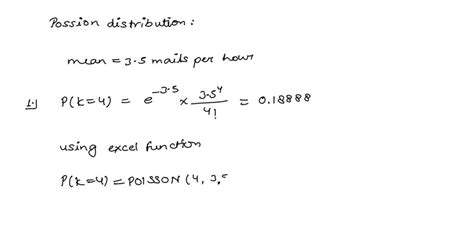 Possion distribution:
mean = 3.5 mails per hour
1.) P(K=4) = e^-3.5 × 3.5^4/4! = 0.18888
using excel function
P(K=4) = POISSON(4, 3,5